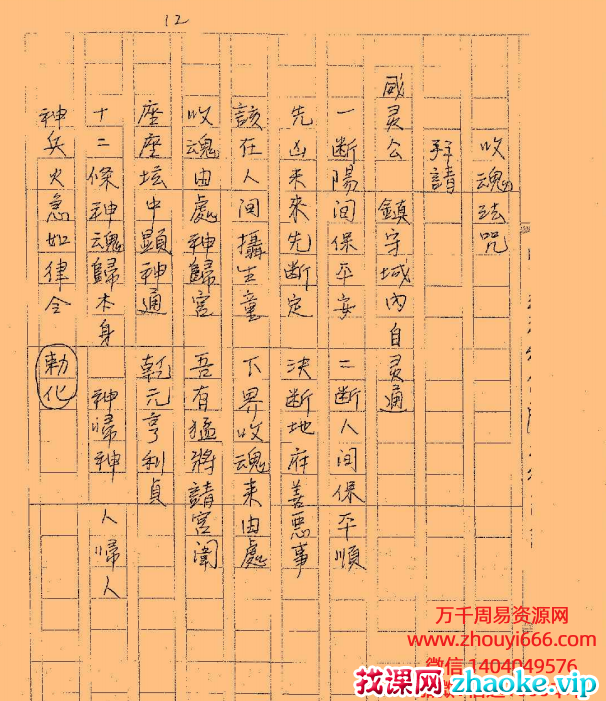 12
收魂法咒
拜請
威灵公 鎮守域內自灵通
一断陽间保平安 二断人间保平順
先凶未來先断定 决断地府善惡事
該在人间攝生童 下界收魂来由處
收魂由處神歸宮 吾有猛將請宮闈
座座坛中顯神通 乾元亨利貞
十二條神魂歸本身 神歸神 人歸人
神兵火急如律令 勅化
万千周易资源网
www.zhouyi666.com
微信 1404049576
找课网zhaoke.vip